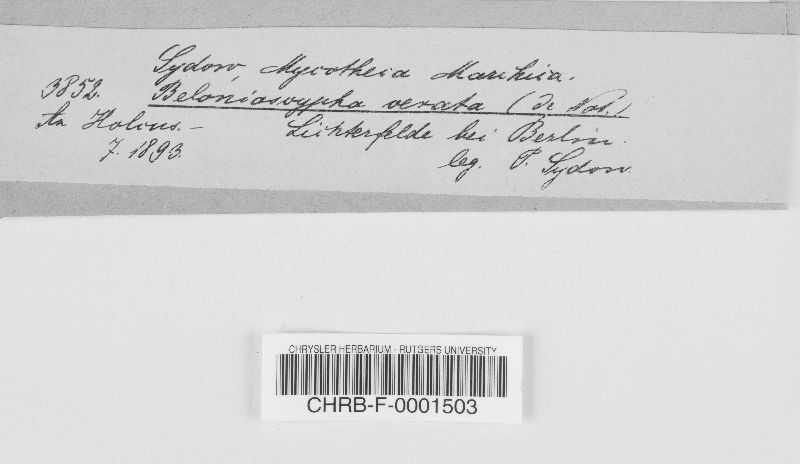 Sydow, Mycotheca Marchica.
3852. Belonioscypha vexata (de Not.)
An Holcus. – Lichterfelde bei Berlin.
7. 1893. leg. P. Sydow.
CHRYSLER HERBARIUM - RUTGERS UNIVERSITY
CHRB-F-0001503